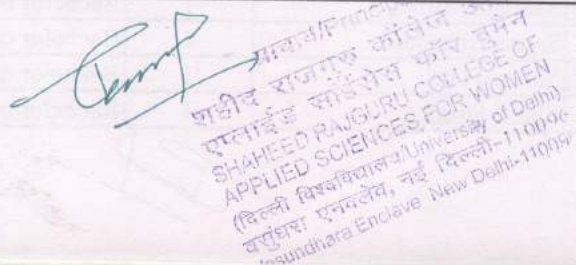 प्राचार्य/Principal
शहीद राजगुरु कॉलेज ऑफ
एप्लाईड साइंसेस फॉर वुमैन
SHAHEED RAJGURU COLLEGE OF
APPLIED SCIENCES FOR WOMEN
(दिल्ली विश्वविद्यालय/University of Delhi)
वसुंधरा एनक्लेव, नई दिल्ली-110096
Vasundhara Enclave New Delhi-110096